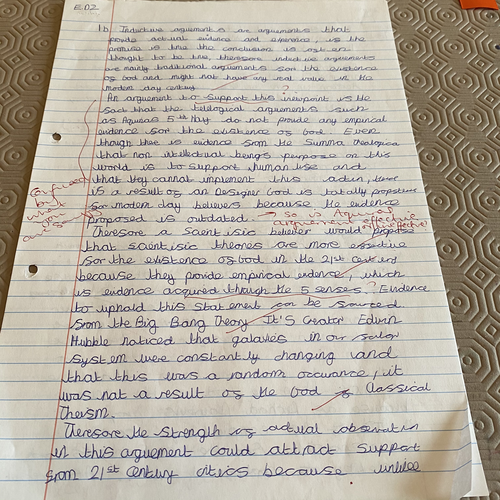 EDZ
1b Inductive arguement is are arguements that
provide actual evidence and experience, is the
premise is true the conclusion is often
thought to be true, therefore inductive arguements
are mainly traditional arguements for the evidence
of God and might not have any real value in the
modern day century ?
An arguement to support this viewpoint is the
fact that the teliological arguements such
as Aquinas 5th Way do not provide any empirical
evidence for the existence of God. Even
though there is evidence from the Summa theologica
that non intellectual beings purpose on this
world is to support human life and
that they cannot implement this
is a result of an Designer God is totally
for modern day believers because the evidence
proposed is outdated. → so is Aquinas
arguement effective
ineffective?
Confused
but
what
you
Therefore a scientific believer would propose
that scientific theories are more effective
for the existence of God in the 21st century
because they provide empirical evidence, which
is evidence acquired through the 5 senses. ? Evidence
to uphold this statement can be sourced
from the Big Bang Theory. It's Creator Edwin
Hubble noticed that galaxies in our solar
system were constantly changing and
that this was a random occurance, it
was not a result of the God of Classical
Theism.
Therefore the strength of actual observation
in this arguement could attract support
from 21st century critics because unlike